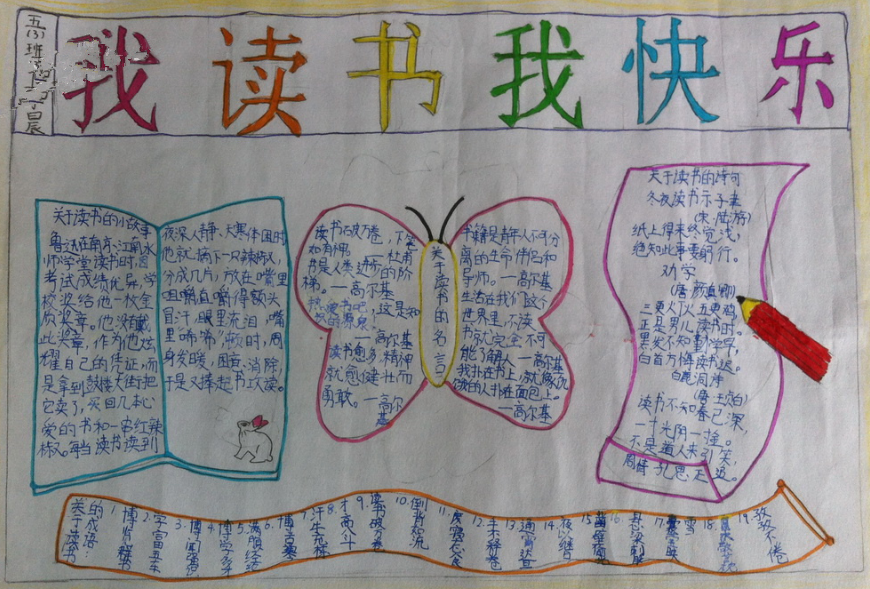 我读书我快乐
五(3)班
关于读书的小故事
鲁迅在南方江南水
师学堂读书时,因
考试成绩优异,学
校没给他一枚金
质奖章。他没有戴
此奖章,作为他炫
耀自己的凭证,而
是拿到鼓楼大街把
它卖了,买回几本心
爱的书和一串红辣
椒。每当读书读到
夜深人静、天寒体困时
他就摘下一只辣椒,
分成几片,放在嘴里
咀嚼,直嚼得额头
冒汗,眼里流泪,嘴
里唏唏,顿时,周
身发暖,困意消除,
于是又捧起书攻读。
关于读书的名言
读书破万卷,下笔
如有神。—杜甫
书是人类进步的阶
梯。—高尔基
—高尔基
读书愈多,精神
就愈健壮而
勇敢。—高尔
基
书籍是青年人不可分
离的生命伴侣和
导师。—高尔基
生活在我们这个
世界里,不读
书就完全不可
能了解人—高尔基
我扑在书上,就像饥
饿的人扑在面包上。
—高尔基
关于读书的诗句
冬夜读书示子聿
(宋·陆游)
纸上得来终觉浅,
绝知此事要躬行。
劝学
(唐·颜真卿)
三更灯火五更鸡,
正是男儿读书时。
黑发不知勤学早,
白首方悔读书迟。
白鹿洞诗
(唐·王贞白)
读书不知春已深,
一寸光阴一寸金。
不是道人来引笑,
周情孔思正追。
关于读书的成语:
1.博览群书
2.学富五车
3.博闻强识
4.博学多才
5.满腹经纶
6.博古通今
7.汗牛充栋
8.才高八斗
9.读书破万卷
10.倒背如流
11.废寝忘食
12.手不释卷
13.通宵达旦
14.夜以继日
15.凿壁偷光
16.悬梁刺股
17.囊萤映雪
18.
19.孜孜不倦